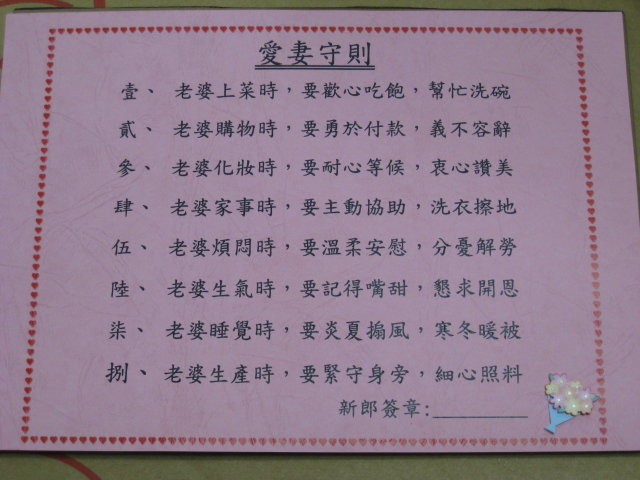 愛妻守則
壹、 老婆上菜時，要歡心吃飽，幫忙洗碗
貳、 老婆購物時，要勇於付款，義不容辭
參、 老婆化妝時，要耐心等候，衷心讚美
肆、 老婆家事時，要主動協助，洗衣擦地
伍、 老婆煩悶時，要溫柔安慰，分憂解勞
陸、 老婆生氣時，要記得嘴甜，懇求開恩
柒、 老婆睡覺時，要炎夏搧風，寒冬暖被
捌、 老婆生產時，要緊守身旁，細心照料
新郎簽章:________